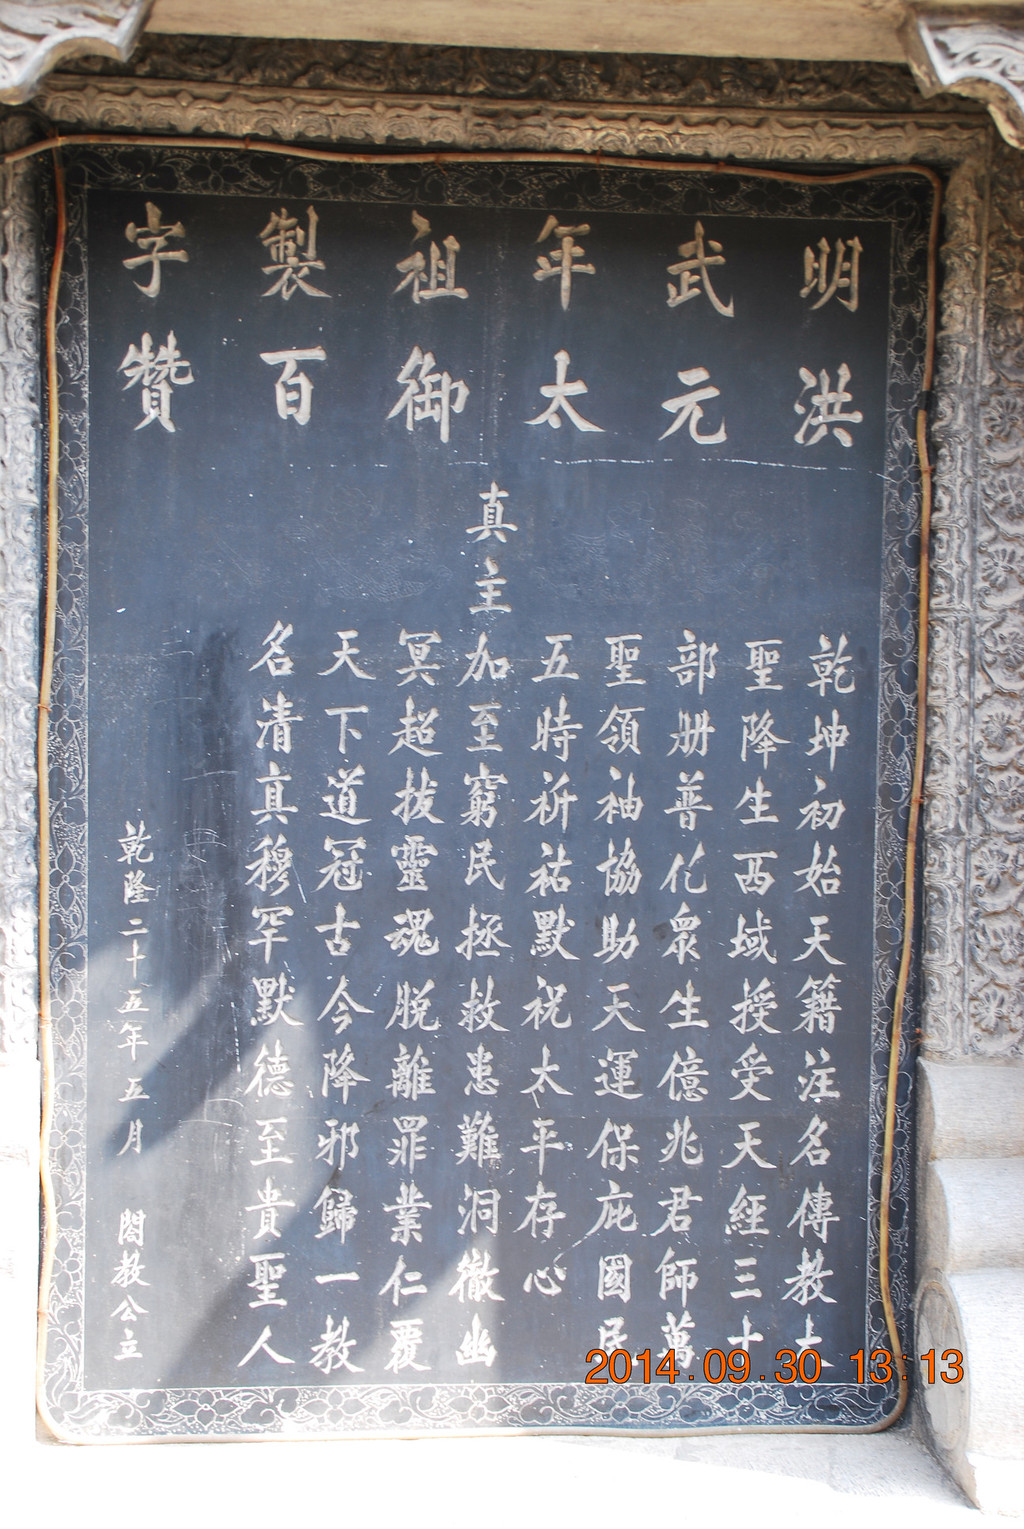 明洪
武元
年太
祖御
製百
字贊
乾坤初始天籍注名傳教大
聖降生西域授受天經三十
部册普化眾生億兆君師萬
聖領袖協助天運保庇國民
五時祈祐默祝太平存心
真主加至窮民拯救患難洞徹幽
冥超拔靈魂脱離罪業仁覆
天下道冠古今降邪歸一教
名清真穆罕默德至貴聖人
乾隆二十五年五月 閤教公立
2014.09.30 13:13